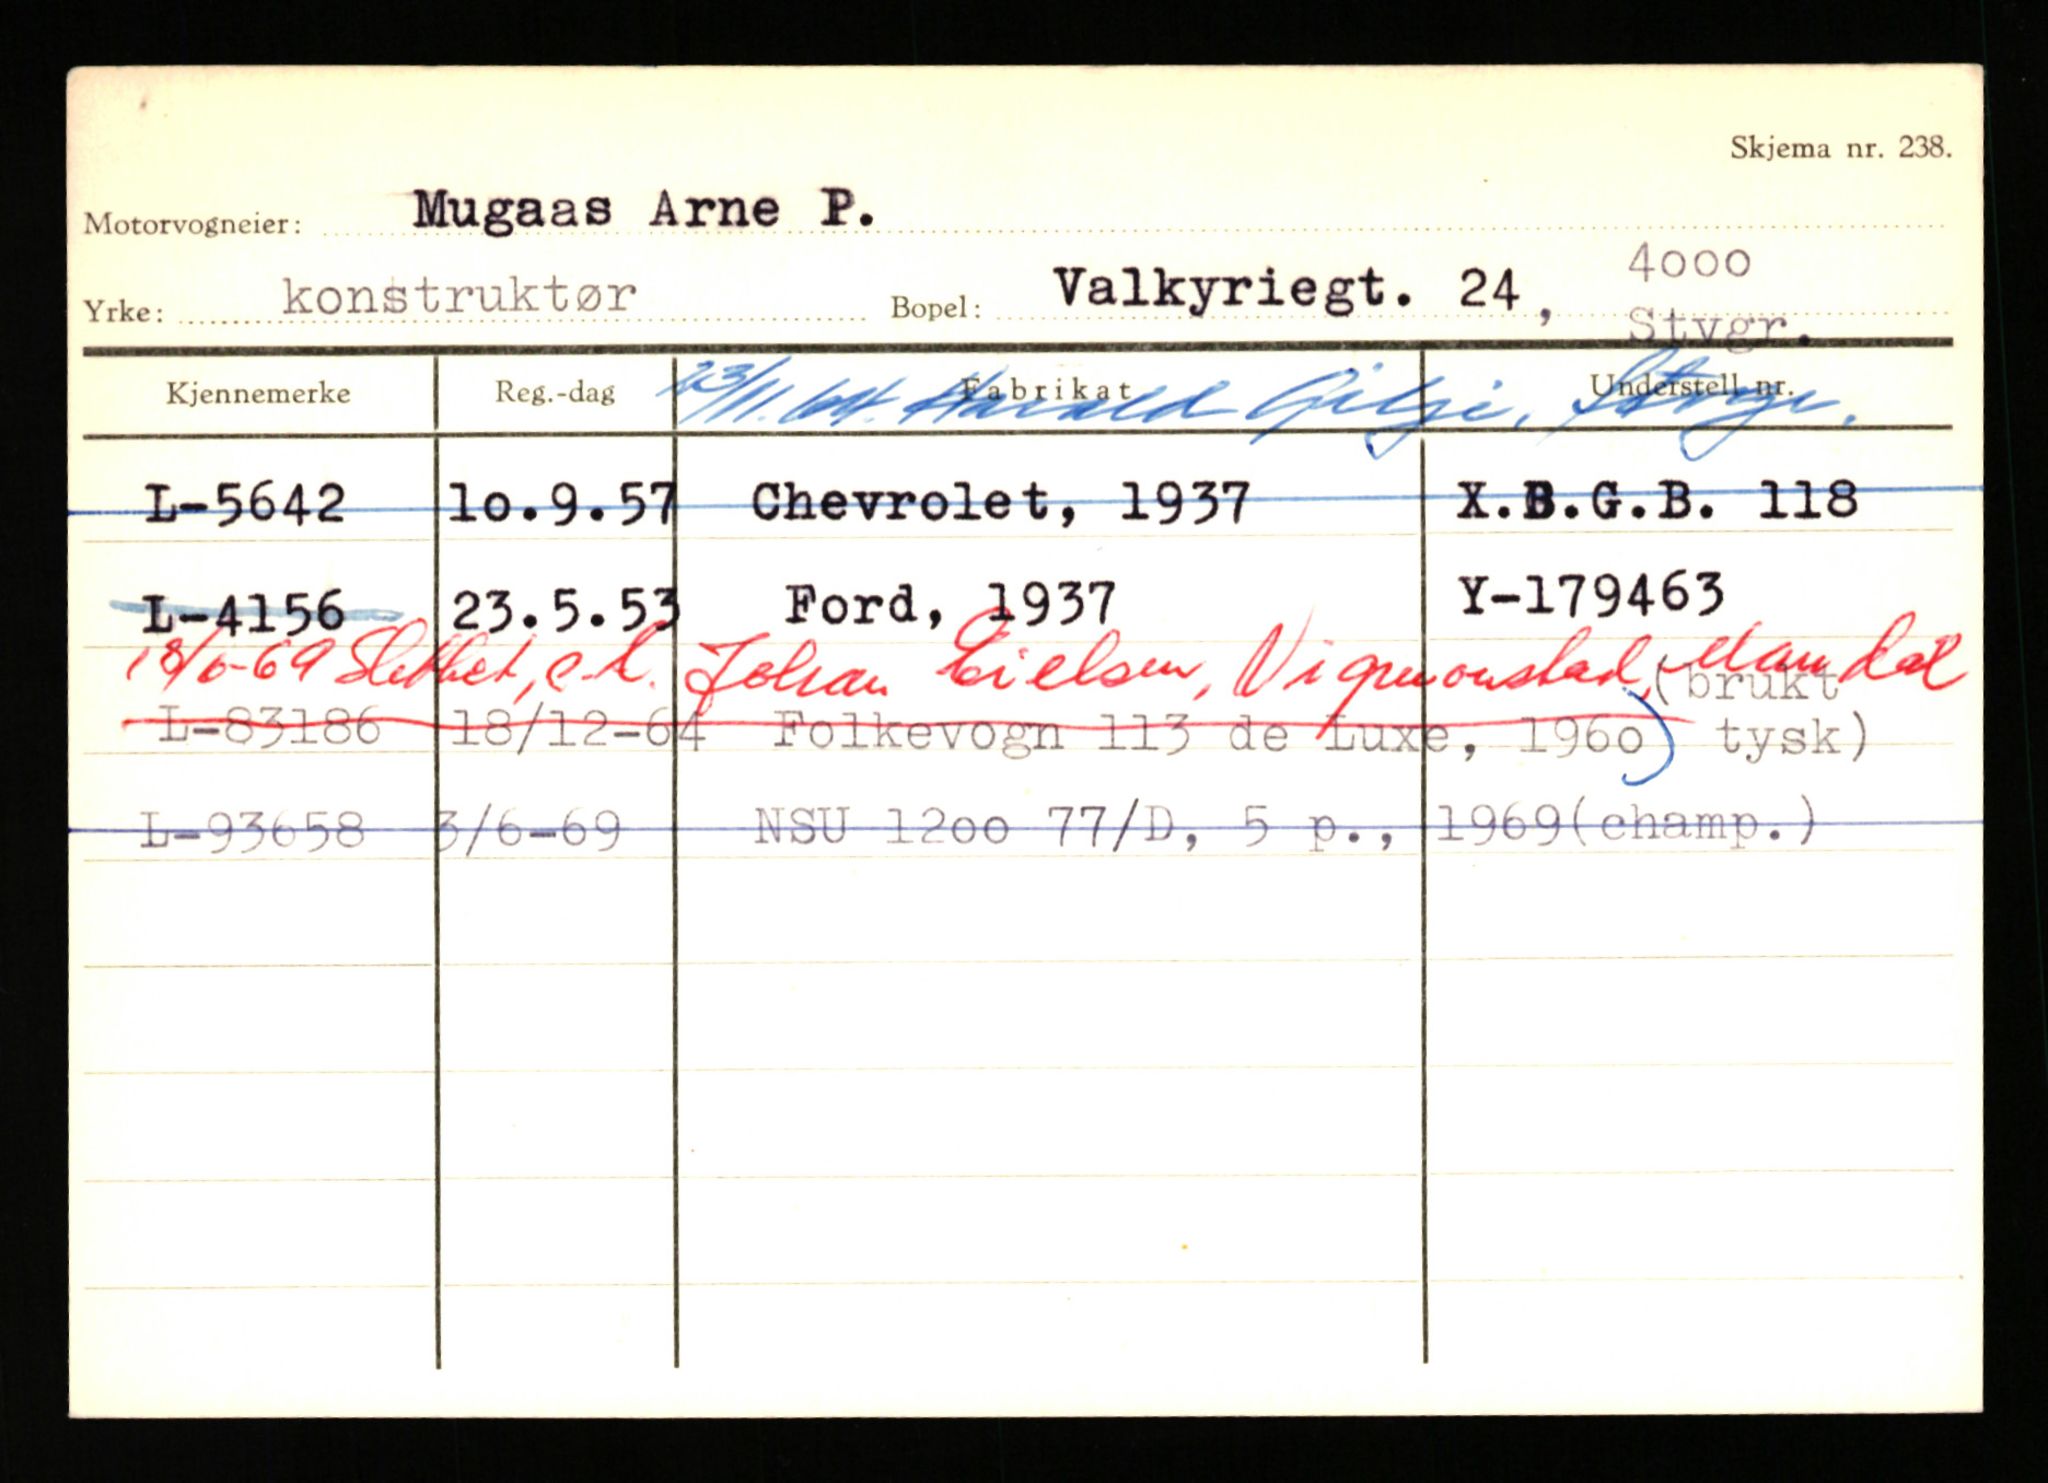 Skjema nr. 238.
Motorvogneier: Mugaas Arne P.
Yrke: konstruktør Bopel: Valkyriegt. 24, 4000 Stvgr.
Kjennemerke Reg.-dag Fabrikat Understell nr.
23/11.64. Harald Gilje, Stvgr.
L-5642 lo.9.57 Chevrolet, 1937 X.B.G.B. 118
L-4156 23.5.53 Ford, 1937 Y-179463
18/6-69 Slettet, e.l. Johan Eielsen, Vigmonstad, Mandal
(brukt
L-83186 18/12-64 Folkevogn 113 de Luxe, 196o tysk)
L-93658 3/6-69 NSU 12oo 77/D, 5 p., 1969(champ.)